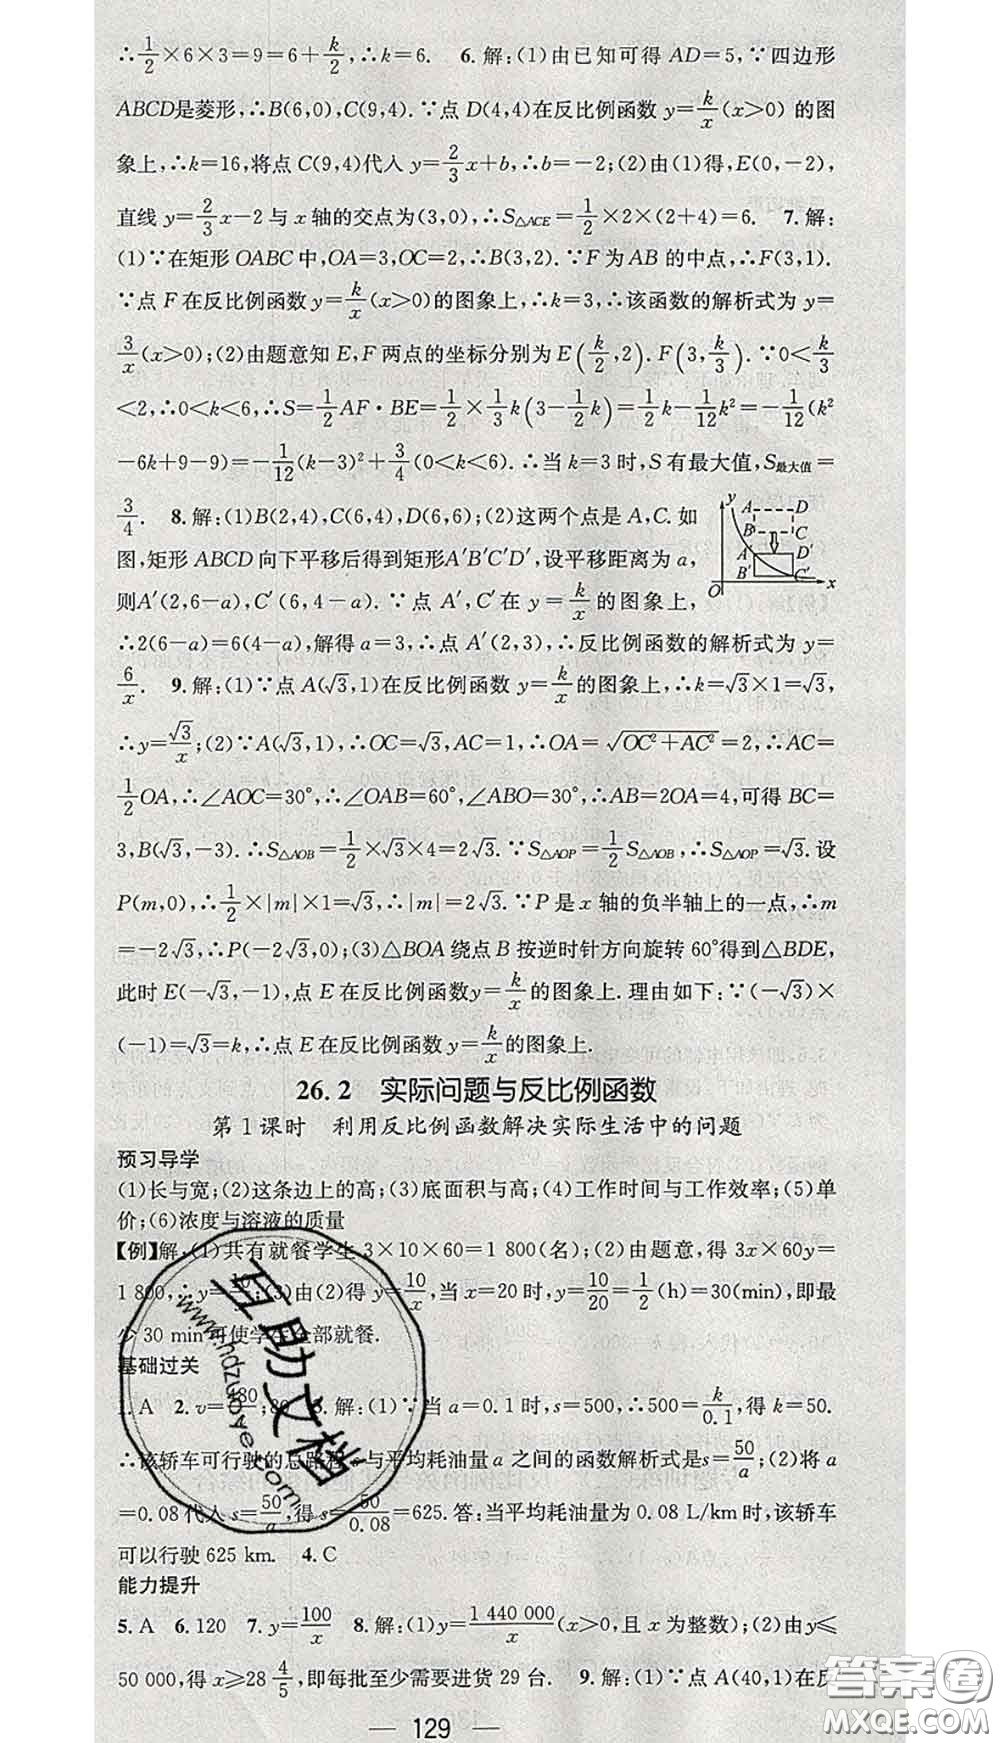 ∴1/2×6×3=9=6+k/2,∴k=6.　6.解:(1)由已知可得 AD=5,∵四边形
ABCD是菱形,∴B(6,0),C(9,4).∵点 D(4,4)在反比例函数 y=k/x(x>0) 的图
象上,∴k=16,将点 C(9,4)代入 y=2/3x+b,∴b=-2;(2)由(1)得,E(0,-2),
直线 y=2/3x-2 与 x 轴的交点为(3,0),∴S△ACE=1/2×2×(2+4)=6.　7.解:
(1)∵在矩形 OABC 中,OA=3,OC=2,∴B(3,2).∵F 为 AB 的中点,∴F(3,1).
∵点 F 在反比例函数 y=k/x(x>0)的图象上,∴k=3,∴该函数的解析式为 y=
3/x(x>0);(2)由题意知 E,F 两点的坐标分别为 E(k/2,2).F(3,k/3).∵0<k/3
<2,∴0<k<6,∴S=1/2AF·BE=1/2×1/3k(3-1/2k)=1/2k-1/12k²=-1/12(k²
-6k+9-9)=-1/12(k-3)²+3/4(0<k<6).∴当 k=3 时,S 有最大值,S最大值=
3/4.　8.解:(1)B(2,4),C(6,4),D(6,6);(2)这两个点是 A,C. 如
图,矩形 ABCD 向下平移后得到矩形A′B′C′D′,设平移距离为 a,
则A′(2,6-a),C′(6,4-a).∵点 A′,C′在 y=k/x的图象上,
y A D
B C
A′ D′
B′ C′
O x
∴2(6-a)=6(4-a),解得 a=3,∴点 A′(2,3),∴反比例函数的解析式为 y=
6/x.　9.解:(1)∵点 A(√3,1)在反比例函数 y=k/x的图象上,∴k=√3×1=√3,
∴y=√3/x;(2)∵A(√3,1),∴OC=√3,AC=1,∴OA=√(OC²+AC²)=2,∴AC=
1/2OA,∴∠AOC=30°,∴∠OAB=60°,∠ABO=30°,∴AB=2OA=4,可得 BC=
3,B(√3,-3).∴S△AOB=1/2×√3×4=2√3.∵S△AOP=1/2S△AOB,∴S△AOP=√3.设
P(m,0),∴1/2×|m|×1=√3,∴|m|=2√3.∵P 是 x 轴的负半轴上的一点,∴m
=-2√3,∴P(-2√3,0);(3)△BOA 绕点 B 按逆时针方向旋转 60°得到△BDE,
此时 E(-√3,-1),点 E 在反比例函数y=k/x的图象上.理由如下:∵(-√3)×
(-1)=√3=k,∴点 E 在反比例函数 y=k/x的图象上.
26.2　实际问题与反比例函数
第 1 课时　利用反比例函数解决实际生活中的问题
预习导学
(1)长与宽;(2)这条边上的高;(3)底面积与高;(4)工作时间与工作效率;(5)单
价;(6)浓度与溶液的质量
【例】解:(1)共有就餐学生 3×10×60=1 800(名);(2)由题意,得 3x×60y=
1 800,∴y=10/x;(3)由(2)得 y=10/x,当 x=20 时,y=10/20=1/2(h)=30(min),即最
少 30 min可使学生全部就餐.
基础过关
1.A　2.v=480/;80　3.解:(1)∵当 a=0.1 时,s=500,∴500=k/0.1,得 k=50.
∴该轿车可行驶的总路程 s与平均耗油量 a 之间的函数解析式是s=50/a;(2)将 a
=0.08 代入 s=50/a,得 s=50/0.08=625.答:当平均耗油量为 0.08 L/km 时,该轿车
可以行驶 625 km.　4.C
能力提升
5.A　6.120　7.y=100/x　8.解:(1)y=1 440 000/x(x>0,且 x 为整数);(2)由 y≤
50 000,得 x≥28 4/5,即每批至少需要进货 29 台.　9.解:(1)∵点 A(40,1)在反
— 129 —
互助文档
www.hdzuoye.com
答案圈
MXQE.COM